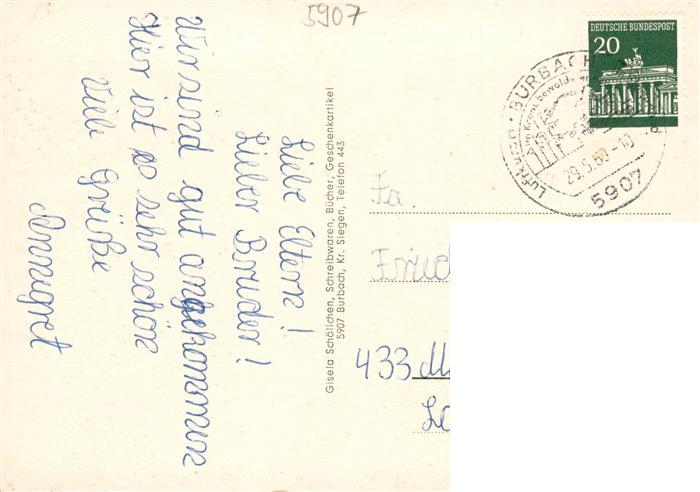 5907
Liebe Eltern!
Lieber Bruder!
Wir sind gut angekommen
Hier ist es sehr schön
Viele Grüße
Annegret
Gisela Schöllchen, Schreibwaren, Bücher, Geschenkartikel
5907 Burbach, Kr. Siegen, Telefon 443
DEUTSCHE BUNDESPOST
20
BURBACH
29.5.69-10
5907
Fa.
433